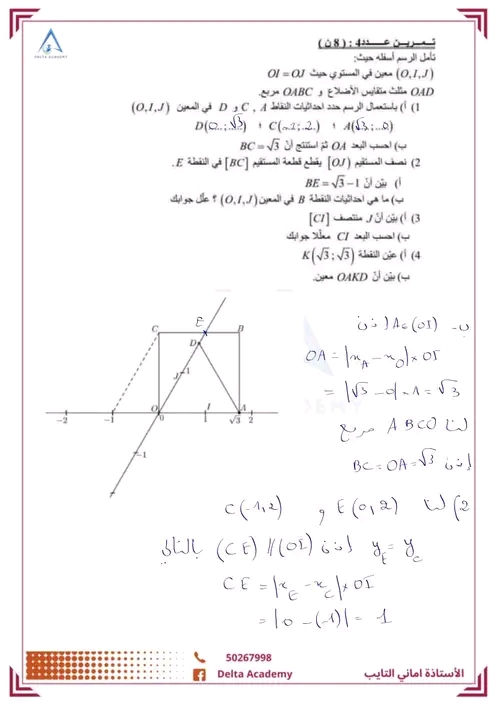 DELTA ACADEMY
تمرين عدد4 : ( 8ن )
تأمل الرسم أسفله حيث:
(O,I,J) معين في المستوي حيث OI = OJ
OAD مثلث متقايس الأضلاع و OABC مربع.
1) أ) باستعمال الرسم حدد احداثيات النقاط A , C و D في المعين (O,I,J)
A(√3;..0) ؛ C(-1;.2.) ؛ D(0..;√3)
ب) احسب البعد OA ثم استنتج أنّ BC = √3
2) نصف المستقيم [OJ) يقطع قطعة المستقيم [BC] في النقطة E.
أ) بيّن أنّ BE = √3 − 1
ب) ما هي احداثيات النقطة B في المعين (O,I,J) ؟ علّل جوابك
3) أ) بيّن أنّ J منتصف [CI]
ب) احسب البعد CI معللا جوابك
4) أ) عيّن النقطة K(√3;√3)
ب) بيّن أنّ OAKD معين.
C E B
D
J 1
O I A
-2 -1 0 1 √3 2
-1
ب- A∈(OI) إذن
OA = |x_A − x_O| × OI
= |√3 − 0| × 1 = √3
لنا ABCO مربع
إذن BC = OA = √3
2) لنا E(0,2) و C(-1,2)
y_E = y_C إذن (CE) // (OI) بالتالي
CE = |x_E − x_C| × OI
= |0 − (−1)| = 1
50267998
Delta Academy
الأستاذة اماني التايب